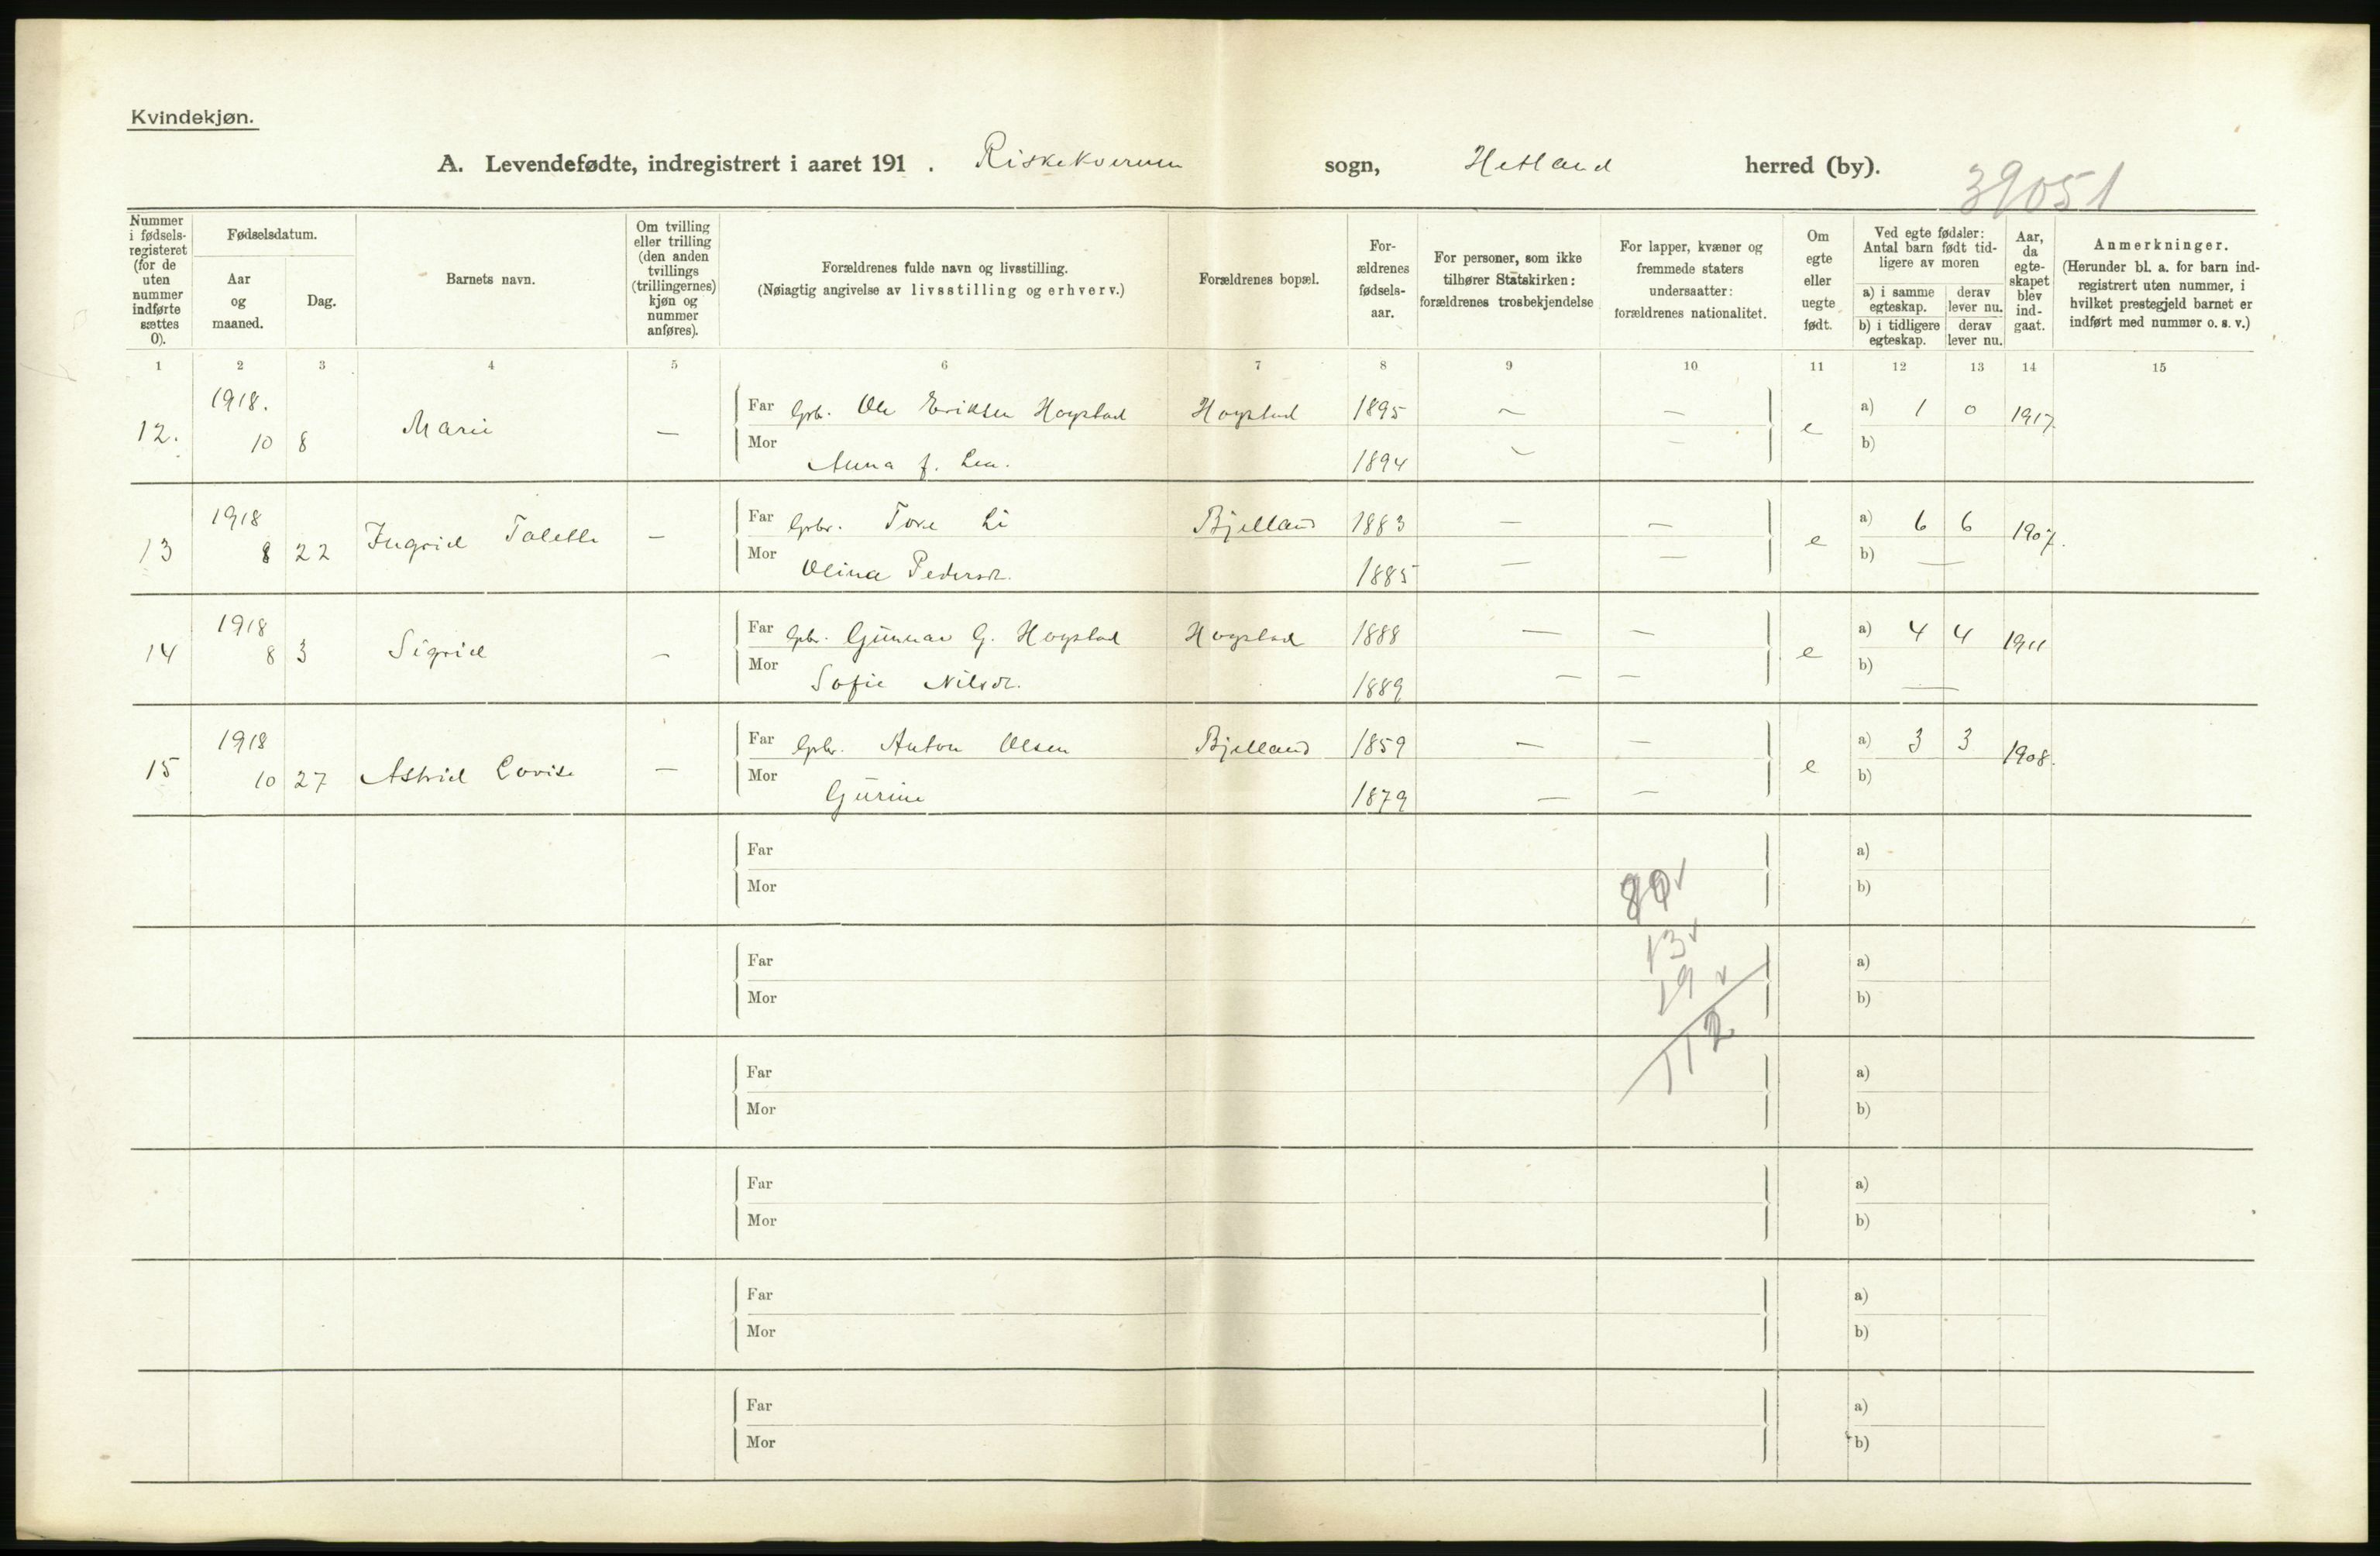 Kvindekjøn.
A. Levendefødte, indregistrert i aaret 191 . Riskekverven sogn, Hetland herred (by).
39051
Nummer i fødsels-registeret (for de uten nummer indførte sættes 0).
Fødselsdatum.
Aar og maaned.
Dag.
Barnets navn.
Om tvilling eller trilling (den anden tvillings (trillingernes) kjøn og nummer anføres).
Forældrenes fulde navn og livsstilling.
(Nøiagtig angivelse av livsstilling og erhverv.)
Forældrenes bopæl.
For-ældrenes fødsels-aar.
For personer, som ikke tilhører Statskirken: forældrenes trosbekjendelse
For lapper, kvæner og fremmede staters undersaatter: forældrenes nationalitet.
Om egte eller uegte født.
Ved egte fødsler: Antal barn født tid-ligere av moren
a) i samme egteskap. derav lever nu.
b) i tidligere egteskap. derav lever nu.
Aar, da egte-skapet blev ind-gaat.
Anmerkninger.
(Herunder bl. a. for barn ind-registrert uten nummer, i hvilket prestegjeld barnet er indført med nummer o. s. v.)
1 2 3 4 5 6 7 8 9 10 11 12 13 14 15
12. 1918. 10 8 Marie — Far Grb. Ole Eriksen Hogstad Hogstad 1895 — — e a) 1 0 1917.
Mor Anna f. Lea. 1894 — — b)
13 1918 8 22 Ingrid Talette — Far Grbr. Tore Li Bjelland 1883 — — e a) 6 6 1907.
Mor Olina Pedersd. 1885 — — b) —
14 1918 8 3 Sigrid — Far Gbr. Gunnar G. Hogstad Hogstad 1888 — — e a) 4 4 1911
Mor Sofie Nilsd. 1889 — — b) —
15 1918 10 27 Astrid Lovise — Far Grbr. Anton Olsen Bjelland 1859 — — e a) 3 3 1908.
Mor Gurine 1879 — — b)
Far a)
Mor 80 b)
13
Far a)
19
Mor b)
112
Far a)
Mor b)
Far a)
Mor b)
Far a)
Mor b)
Far a)
Mor b)